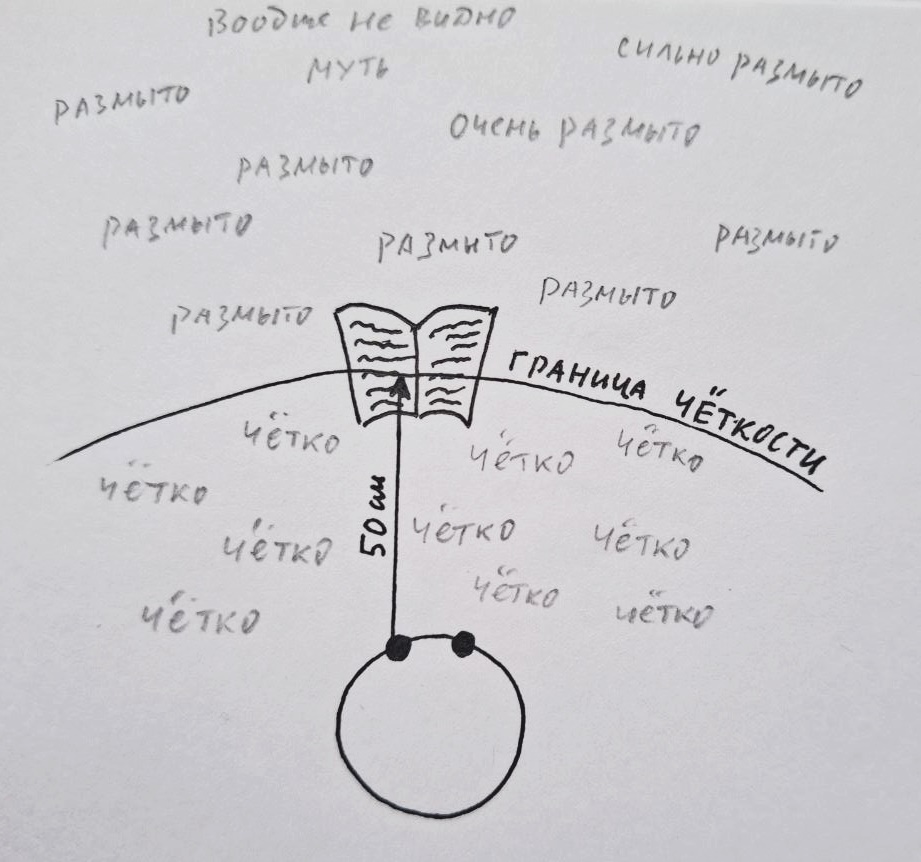 Вообще не видно
МУТЬ
СИЛЬНО РАЗМЫТО
РАЗМЫТО
ОЧЕНЬ РАЗМЫТО
РАЗМЫТО
РАЗМЫТО
РАЗМЫТО
РАЗМЫТО
РАЗМЫТО
РАЗМЫТО
ГРАНИЦА ЧЁТКОСТИ
ЧЁТКО
ЧЁТКО
ЧЁТКО
ЧЁТКО
50 см
ЧЁТКО
ЧЁТКО
ЧЁТКО
ЧЁТКО
ЧЁТКО
ЧЁТКО